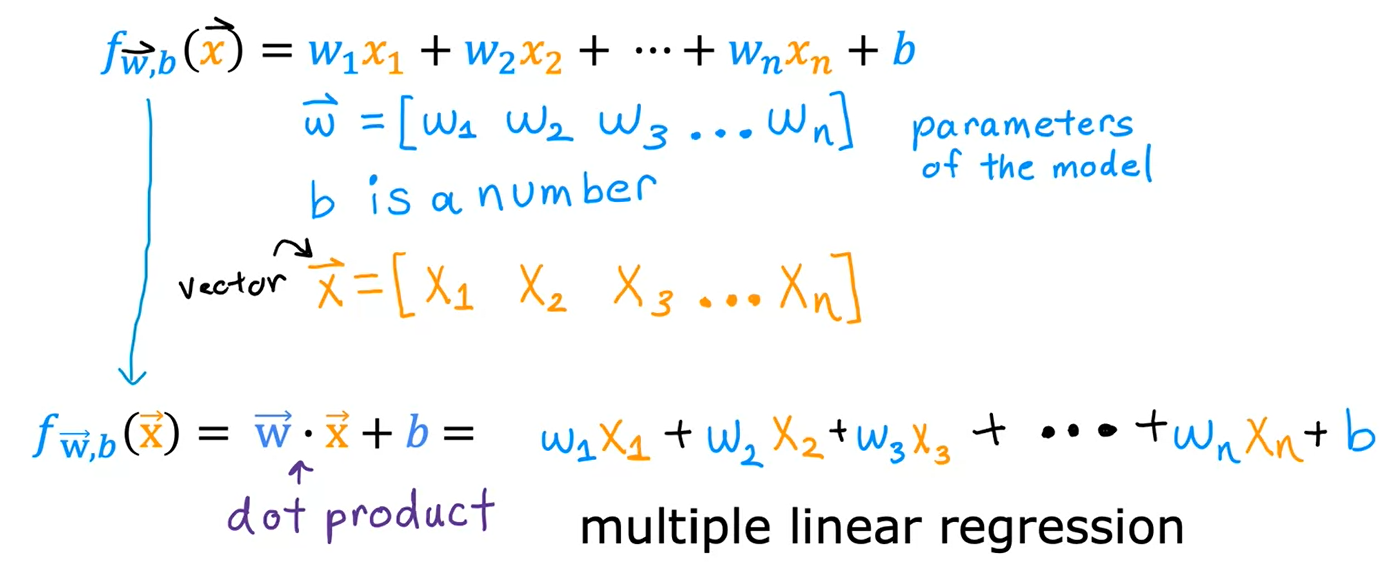 f_{\vec{w},b}(\vec{x}) = w_1x_1 + w_2x_2 + ⋯ + w_nx_n + b
\vec{w} = [w_1 w_2 w_3 ... w_n]
parameters
of the model
b is a number
vector \vec{x} = [x_1 x_2 x_3 ... x_n]
f_{\vec{w},b}(\vec{x}) = \vec{w} · \vec{x} + b = w_1x_1 + w_2x_2 + w_3x_3 + ... + w_nx_n + b
dot product
multiple linear regression